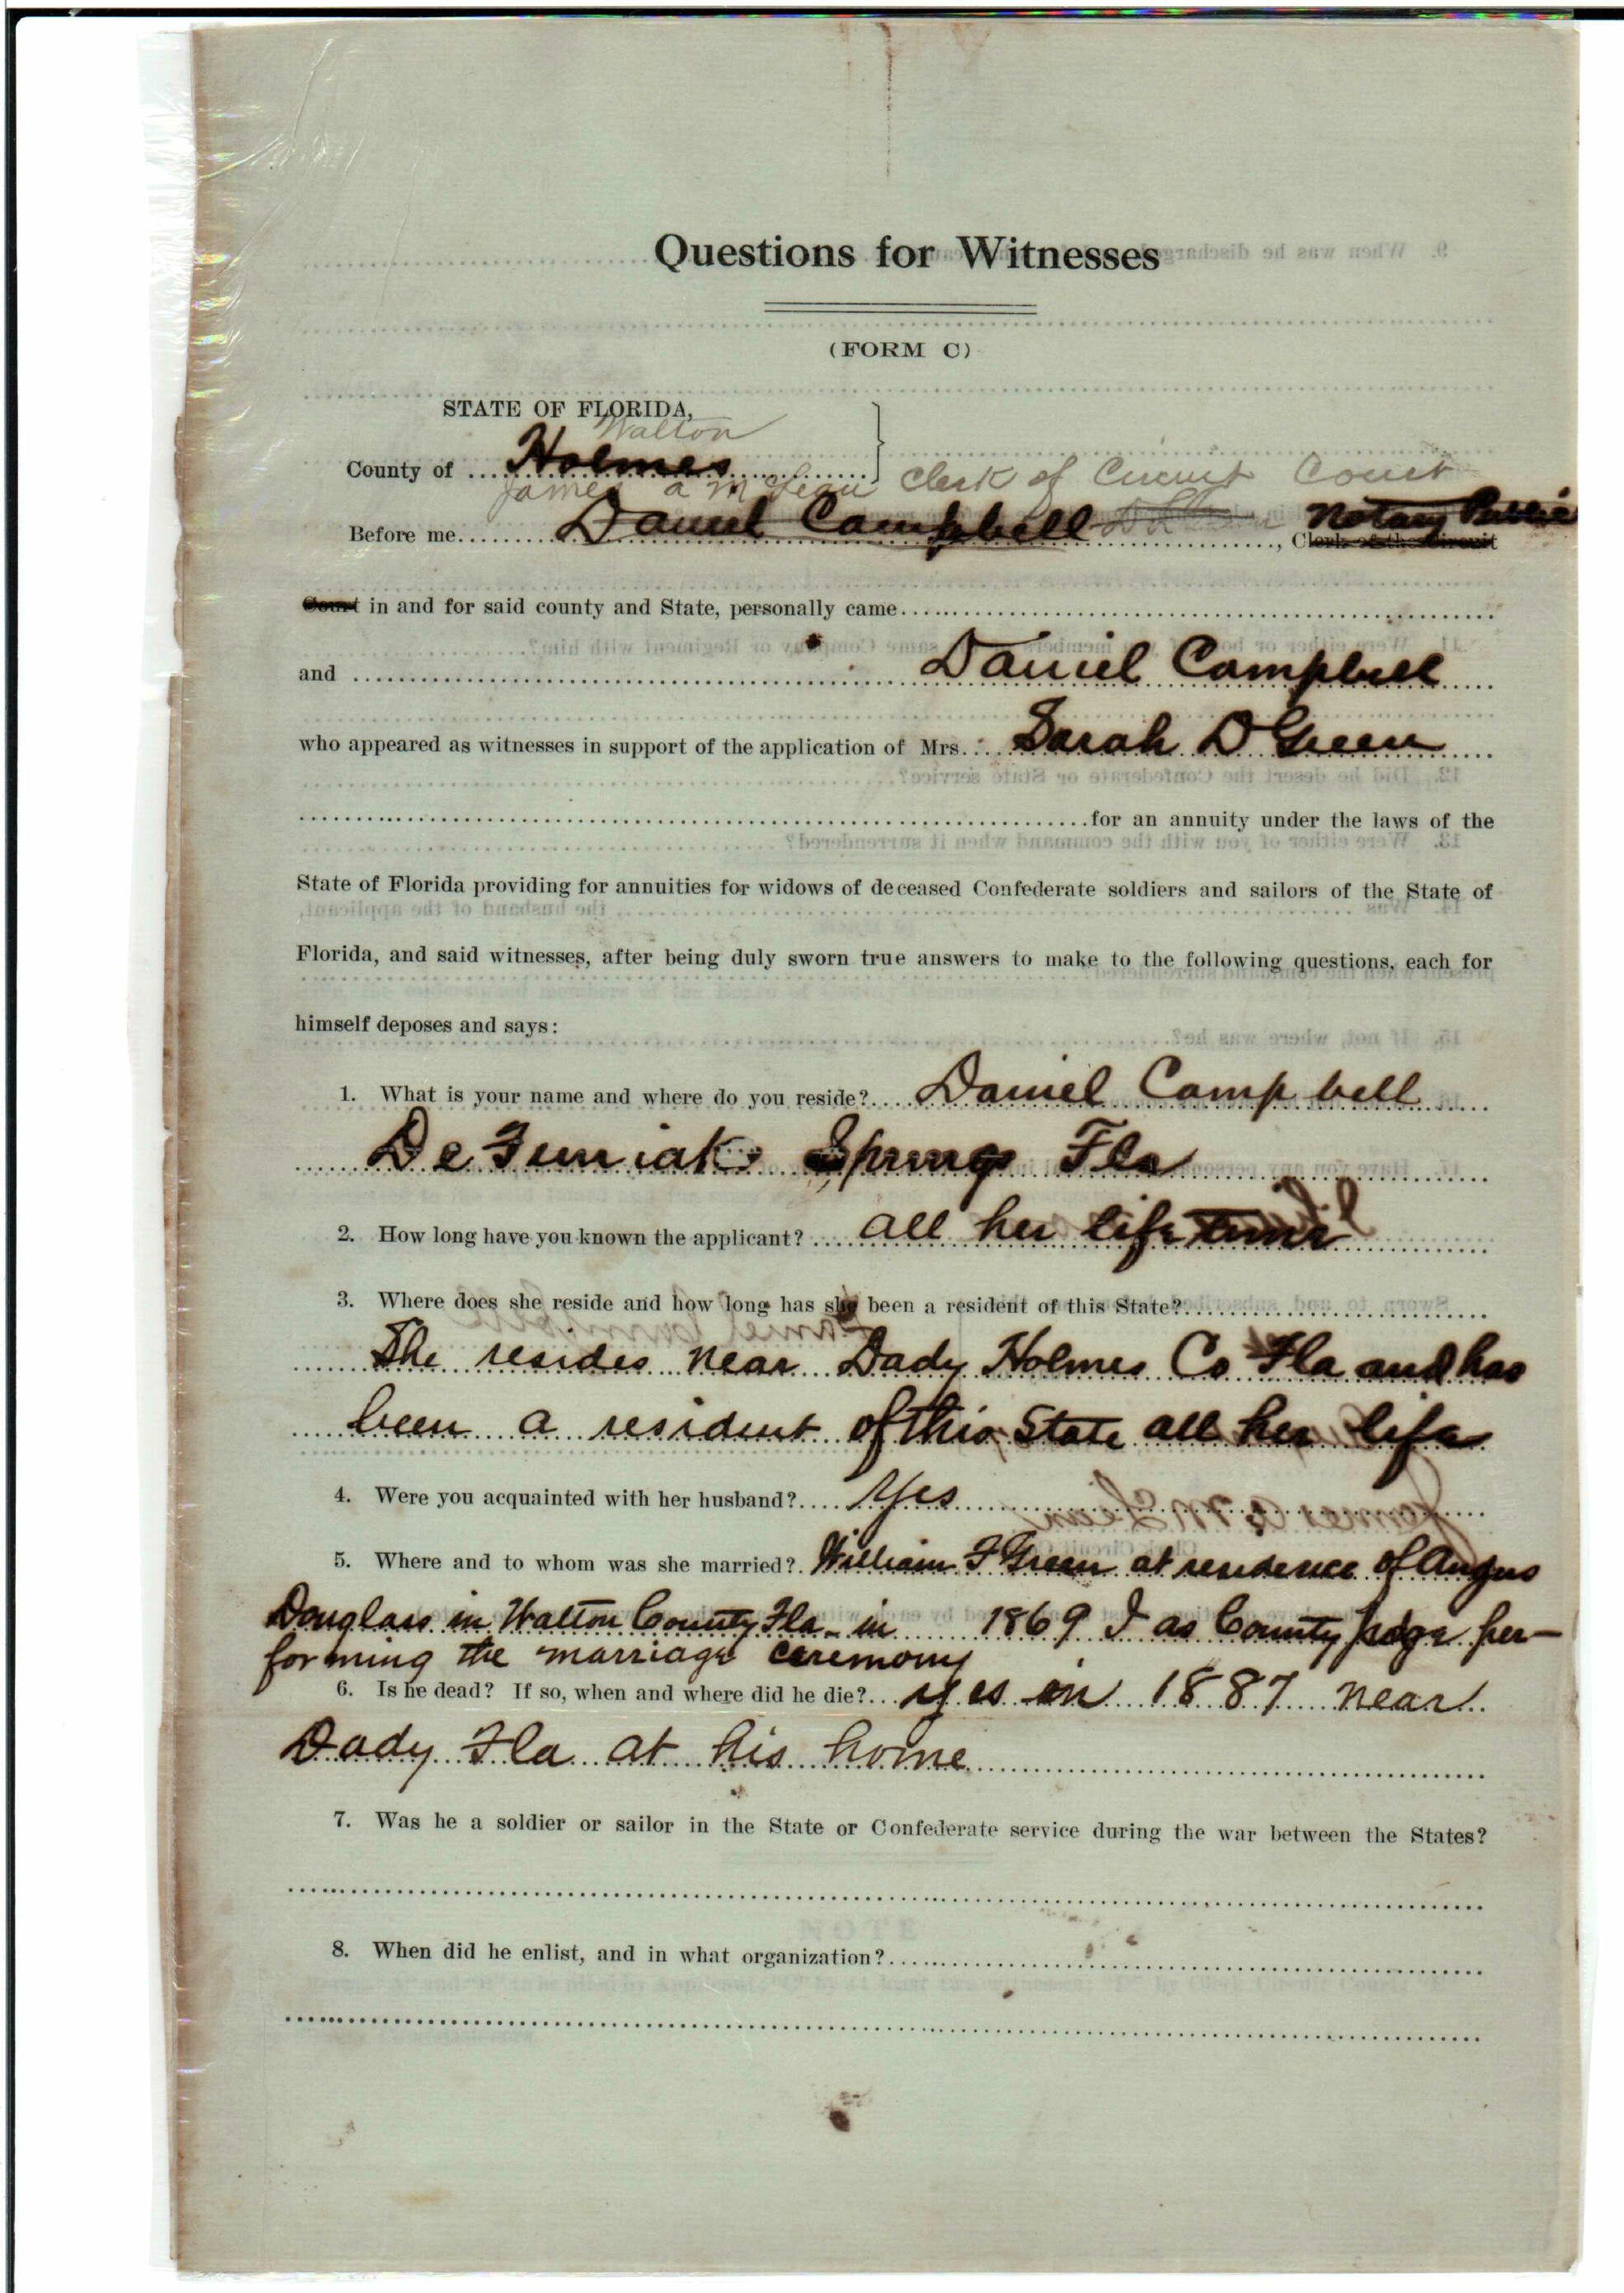 Questions for Witnesses
(FORM C)
STATE OF FLORIDA,
Walton
County of Holmes
James A McLean Clerk of Circuit Court
Before me Daniel Campbell Notary Public
, Clerk of the Circuit
Court in and for said county and State, personally came
and Daniel Campbell
who appeared as witnesses in support of the application of Mrs. Sarah D Green
for an annuity under the laws of the
State of Florida providing for annuities for widows of deceased Confederate soldiers and sailors of the State of
Florida, and said witnesses, after being duly sworn true answers to make to the following questions, each for
himself deposes and says:
1. What is your name and where do you reside? Daniel Campbell
De Funiak Springs Fla
2. How long have you known the applicant? all her life time
3. Where does she reside and how long has she been a resident of this State?
She resides near Dady Holmes Co Fla and has
been a resident of this State all her life
4. Were you acquainted with her husband? Yes
5. Where and to whom was she married? William F Green at residence of Angus
Douglass in Walton County Fla - in 1869 I as County Judge per-
forming the marriage ceremony
6. Is he dead? If so, when and where did he die? yes in 1887 near
Dady Fla at his home
7. Was he a soldier or sailor in the State or Confederate service during the war between the States?
8. When did he enlist, and in what organization?